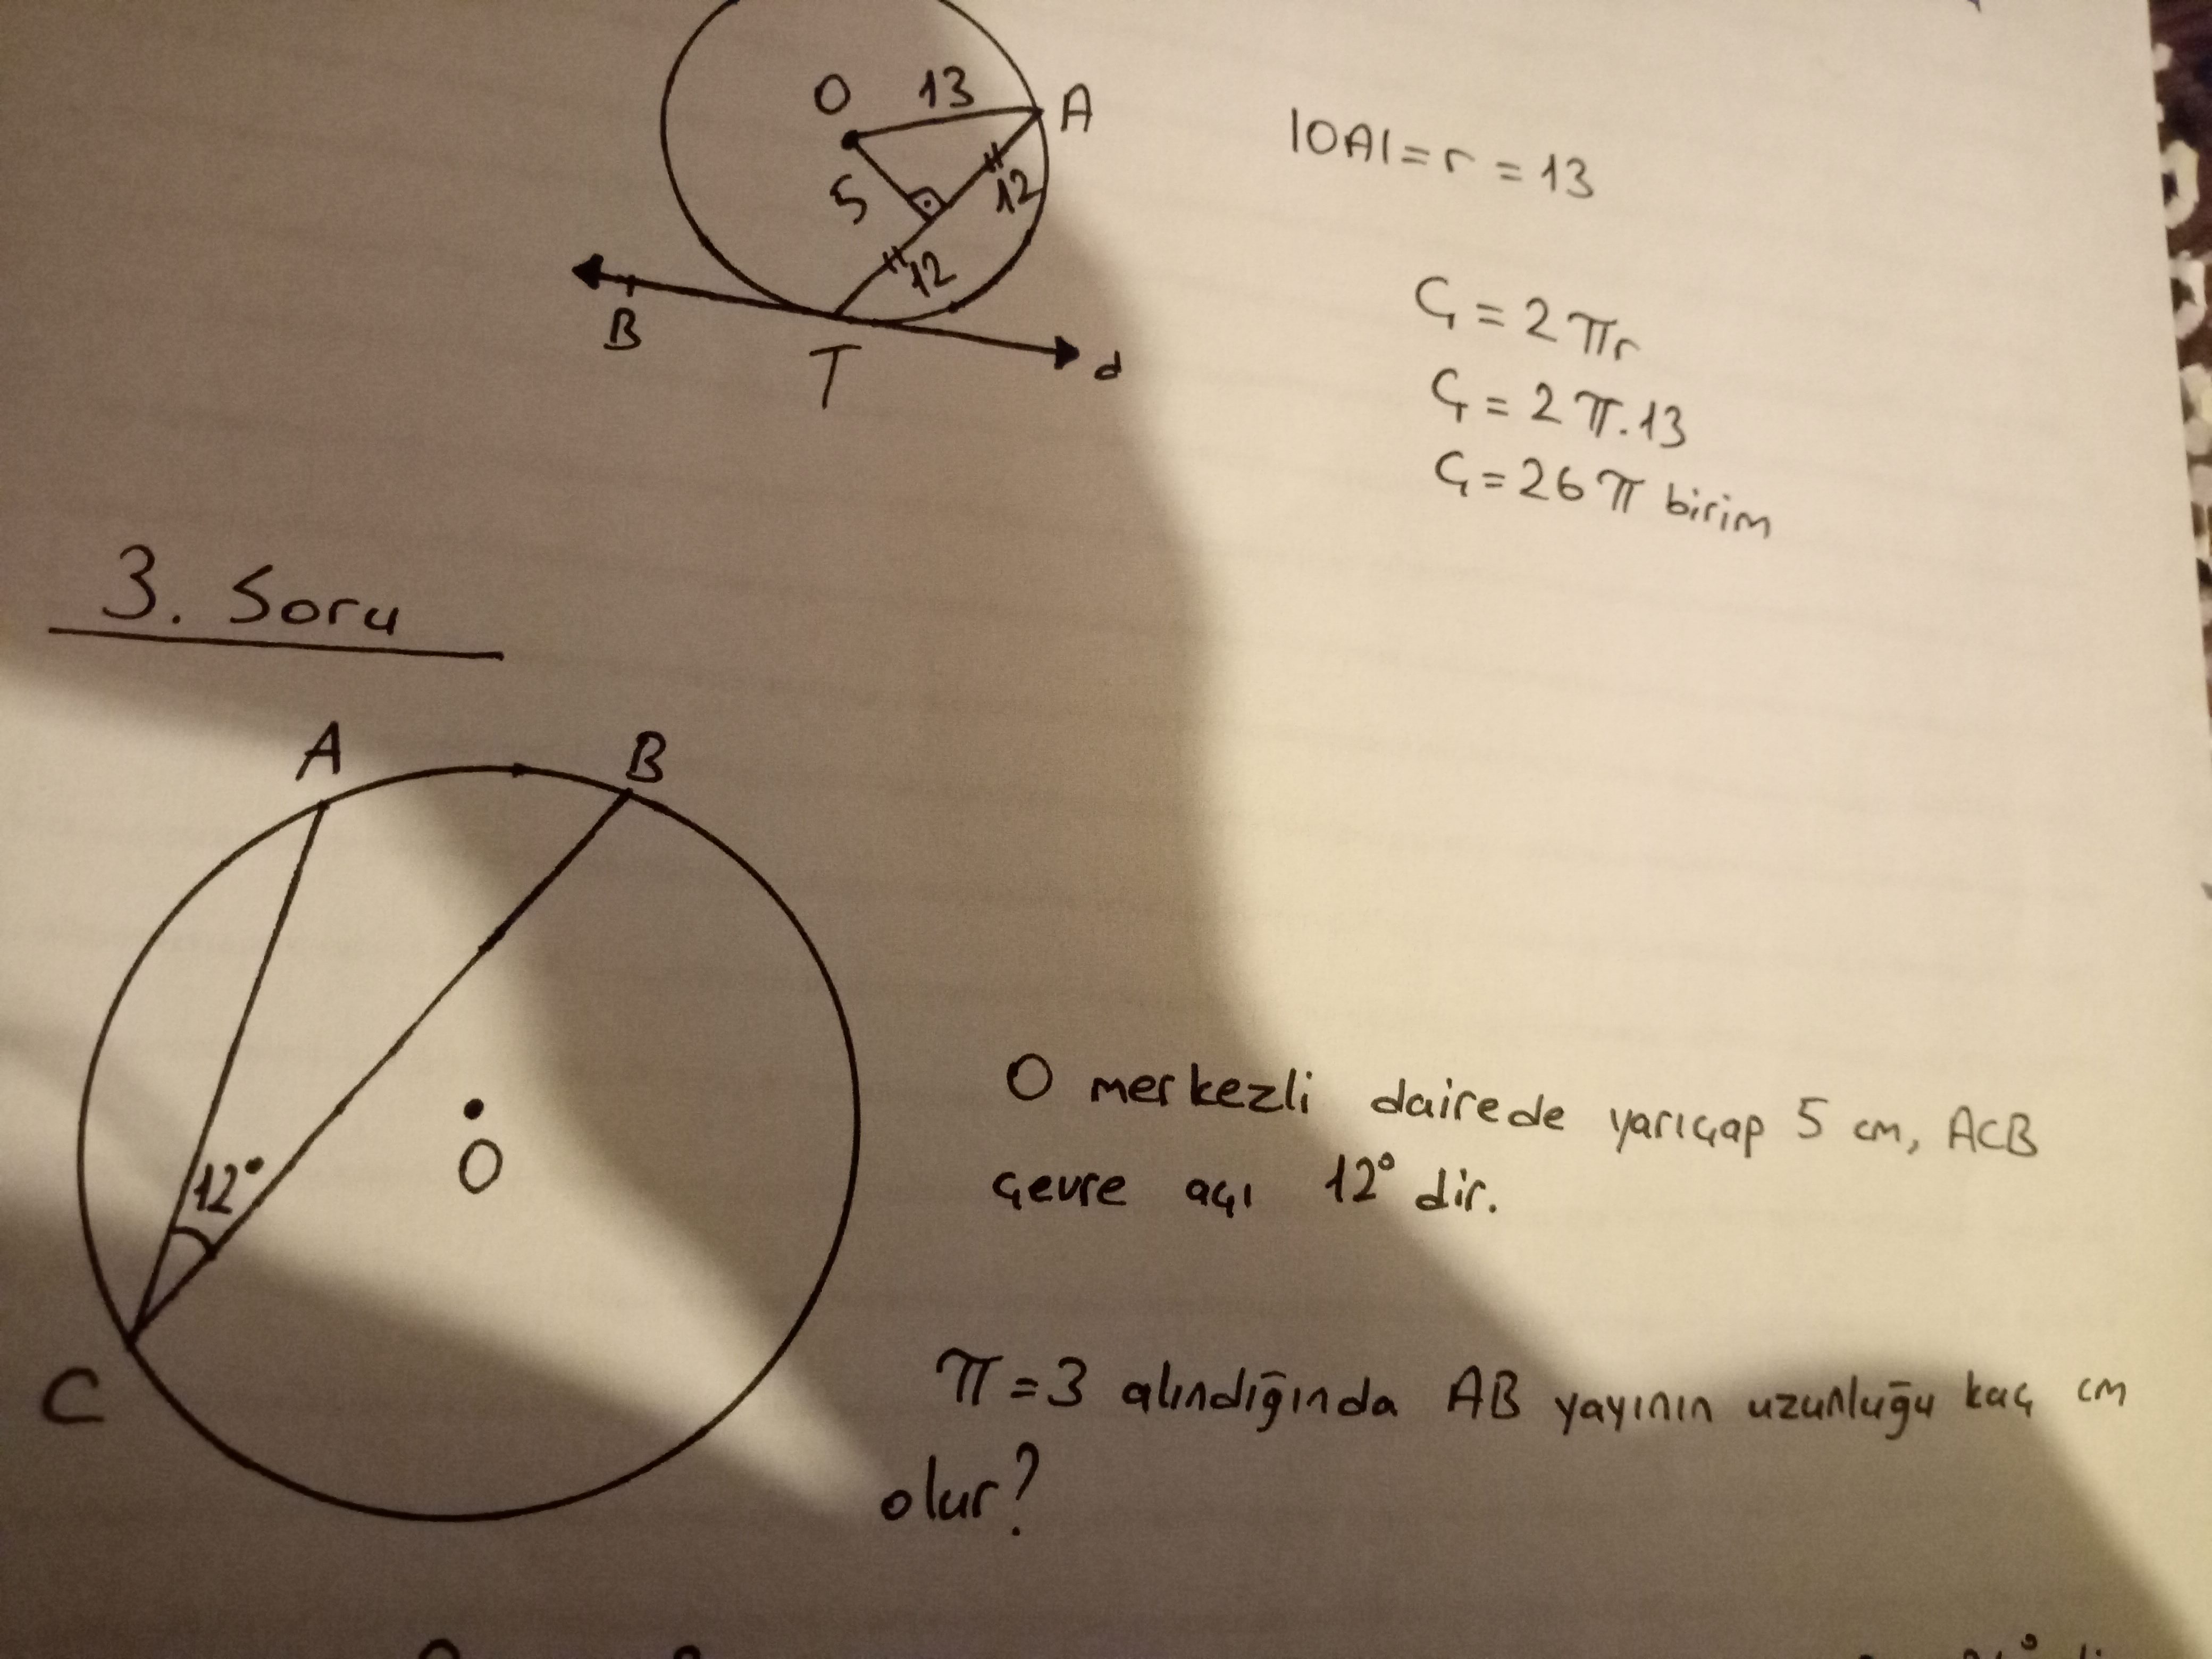 O 13 A
5 12
12
B
T d
|OA| = r = 13
Ç = 2πr
Ç = 2π.13
Ç = 26π birim
3. Soru
A B
12°
O
C
O merkezli dairede yarıçap 5 cm, ACB
çevre açı 12° dir.
π = 3 alındığında AB yayının uzunluğu kaç cm
olur?